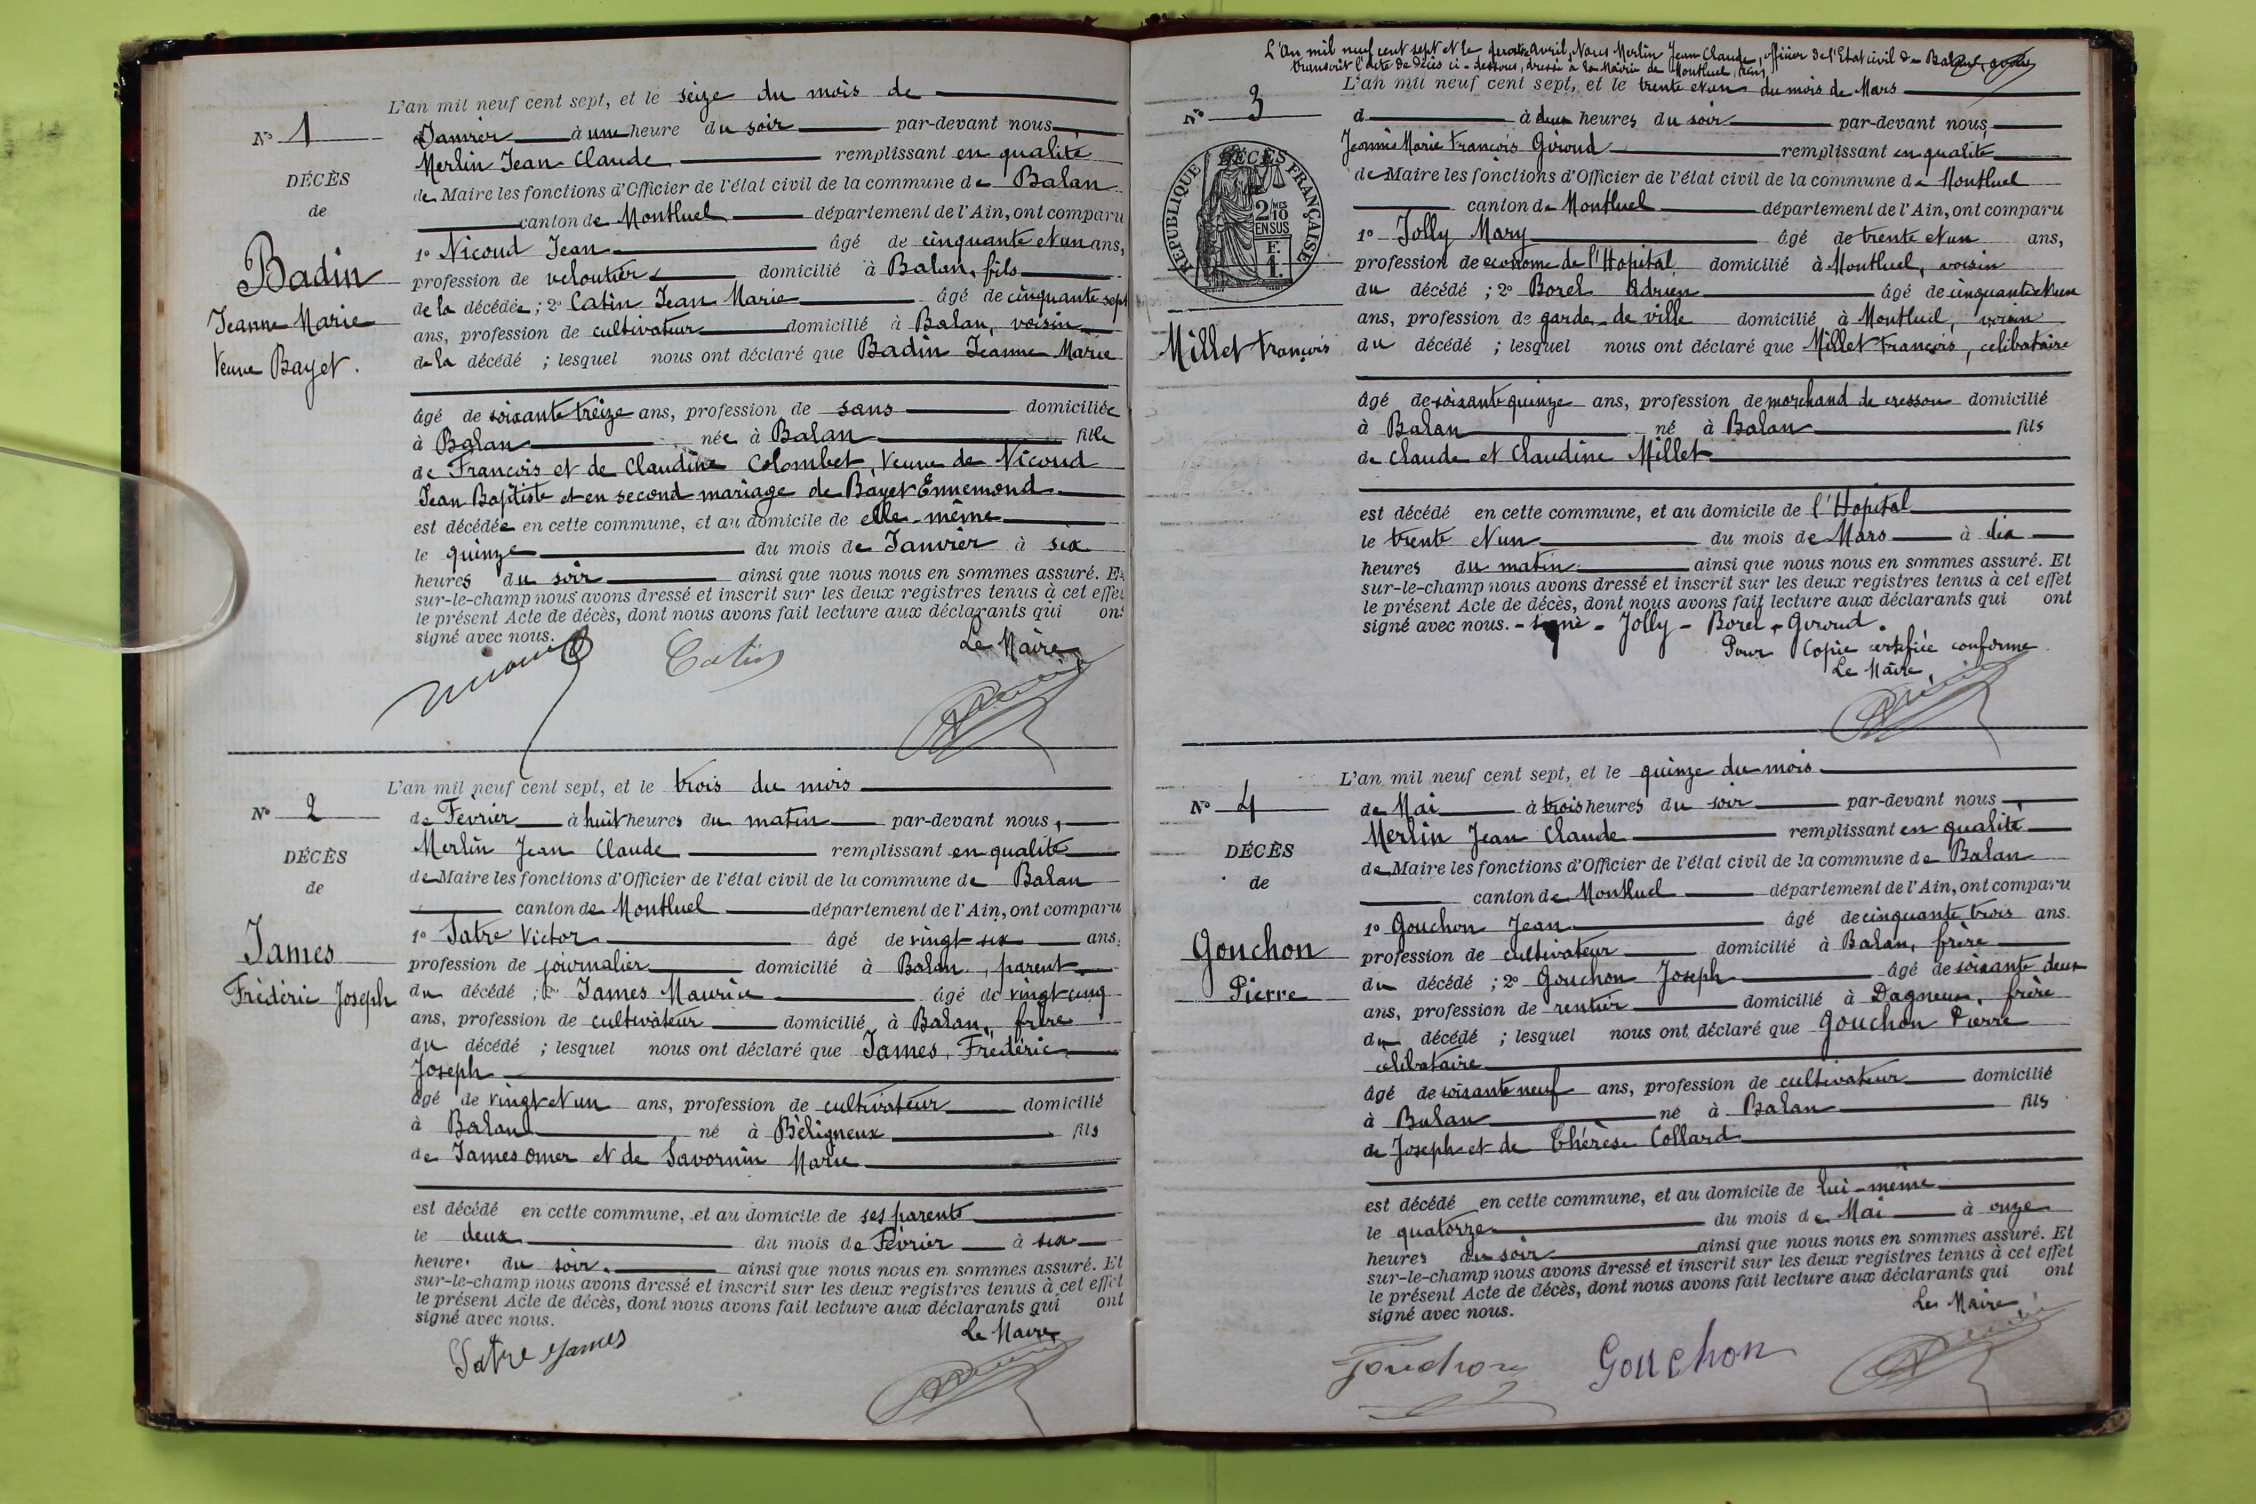 L'an mil neuf cent sept, et le seize du mois de
N° 1
Janvier à une heure du soir par-devant nous
Merlin Jean Claude remplissant en qualité
DÉCÈS
de Maire les fonctions d'Officier de l'état civil de la commune de Balan
de
canton de Montluel département de l'Ain, ont comparu
1° Nicoud Jean âgé de cinquante et un ans,
Badin
profession de veloutier domicilié à Balan, fils
de la décédée ; 2° Catin Jean Marie âgé de cinquante sept
Jeanne Marie
ans, profession de cultivateur domicilié à Balan, voisin
Veuve Bayet.
de la décédé ; lesquel nous ont déclaré que Badin Jeanne Marie
âgé de soixante treize ans, profession de sans domiciliée
à Balan née à Balan fille
de François et de Claudine Colombet, Veuve de Nicoud
Jean Baptiste et en second mariage de Bayet Ennemond
est décédée en cette commune, et au domicile de elle-même
le quinze du mois de Janvier à six
heures du soir ainsi que nous nous en sommes assuré. Et
sur-le-champ nous avons dressé et inscrit sur les deux registres tenus à cet effet
le présent Acte de décès, dont nous avons fait lecture aux déclarants qui ont
signé avec nous.
Le Maire
Nicoud Catin
L'an mil neuf cent sept, et le trois du mois
N° 2
de Février à huit heures du matin par-devant nous,
Merlin Jean Claude remplissant en qualité
DÉCÈS
de Maire les fonctions d'Officier de l'état civil de la commune de Balan
de
canton de Montluel département de l'Ain, ont comparu
1° Satre Victor âgé de vingt six ans,
James
profession de journalier domicilié à Balan, parent
Frédéric Joseph
du décédé ; 2° James Maurice âgé de vingt cinq
ans, profession de cultivateur domicilié à Balan, frère
du décédé ; lesquel nous ont déclaré que James, Frédéric
Joseph
âgé de vingt et un ans, profession de cultivateur domicilié
à Balan né à Béligneux fils
de James Omer et de Savornin Marie
est décédé en cette commune, et au domicile de ses parents
le deux du mois de Février à six
heures du soir. ainsi que nous nous en sommes assuré. Et
sur-le-champ nous avons dressé et inscrit sur les deux registres tenus à cet effet
le présent Acte de décès, dont nous avons fait lecture aux déclarants qui ont
signé avec nous.
Le Maire
Satre James
L'An mil neuf cent sept et le quatre avril, Nous Merlin Jean Claude, officier de l'Etat civil de Balan, avons
transcrit l'acte de décès ci-dessous, dressé à la Mairie de Montluel, Ain,
L'an mil neuf cent sept, et le trente et un du mois de Mars
N° 3
d à deux heures du soir par-devant nous,
Jeannis Marie François Giroud remplissant en qualité
DÉCÈS
RÉPUBLIQUE FRANÇAISE
2/10 MES
EN SUS
F.
1.
de Maire les fonctions d'Officier de l'état civil de la commune de Montluel
canton de Montluel département de l'Ain, ont comparu
1° Jolly Mary âgé de trente et un ans,
profession de econome de l'Hopital domicilié à Montluel, voisin
du décédé ; 2° Borel Adrien âgé de cinquante et un
ans, profession de garde de ville domicilié à Montluel, voisin
Millet François
du décédé ; lesquel nous ont déclaré que Millet François, célibataire
âgé de soixante quinze ans, profession de marchand de cresson domicilié
à Balan né à Balan fils
de Claude et Claudine Millet
est décédé en cette commune, et au domicile de l'Hopital
le trente et un du mois de Mars à dix
heures du matin. ainsi que nous nous en sommes assuré. Et
sur-le-champ nous avons dressé et inscrit sur les deux registres tenus à cet effet
le présent Acte de décès, dont nous avons fait lecture aux déclarants qui ont
signé avec nous. - signé - Jolly - Borel - Giroud.
Pour Copie certifiée conforme
Le Maire,
L'an mil neuf cent sept, et le quinze du mois
N° 4
de Mai à trois heures du soir par-devant nous,
Merlin Jean Claude remplissant en qualité
DÉCÈS
de Maire les fonctions d'Officier de l'état civil de la commune de Balan
de
canton de Montluel département de l'Ain, ont comparu
1° Gouchon Jean âgé de cinquante trois ans.
Gouchon
profession de cultivateur domicilié à Balan, frère
Pierre
du décédé ; 2° Gouchon Joseph âgé de soixante deux
ans, profession de rentier domicilié à Dagneux, frère
du décédé ; lesquel nous ont déclaré que Gouchon Pierre
célibataire
âgé de soixante neuf ans, profession de cultivateur domicilié
à Balan né à Balan fils
de Joseph et de Thérèse Collard
est décédé en cette commune, et au domicile de lui-même
le quatorze du mois de Mai à onze
heures du soir ainsi que nous nous en sommes assuré. Et
sur-le-champ nous avons dressé et inscrit sur les deux registres tenus à cet effet
le présent Acte de décès, dont nous avons fait lecture aux déclarants qui ont
signé avec nous.
Le Maire,
Gouchon Gouchon